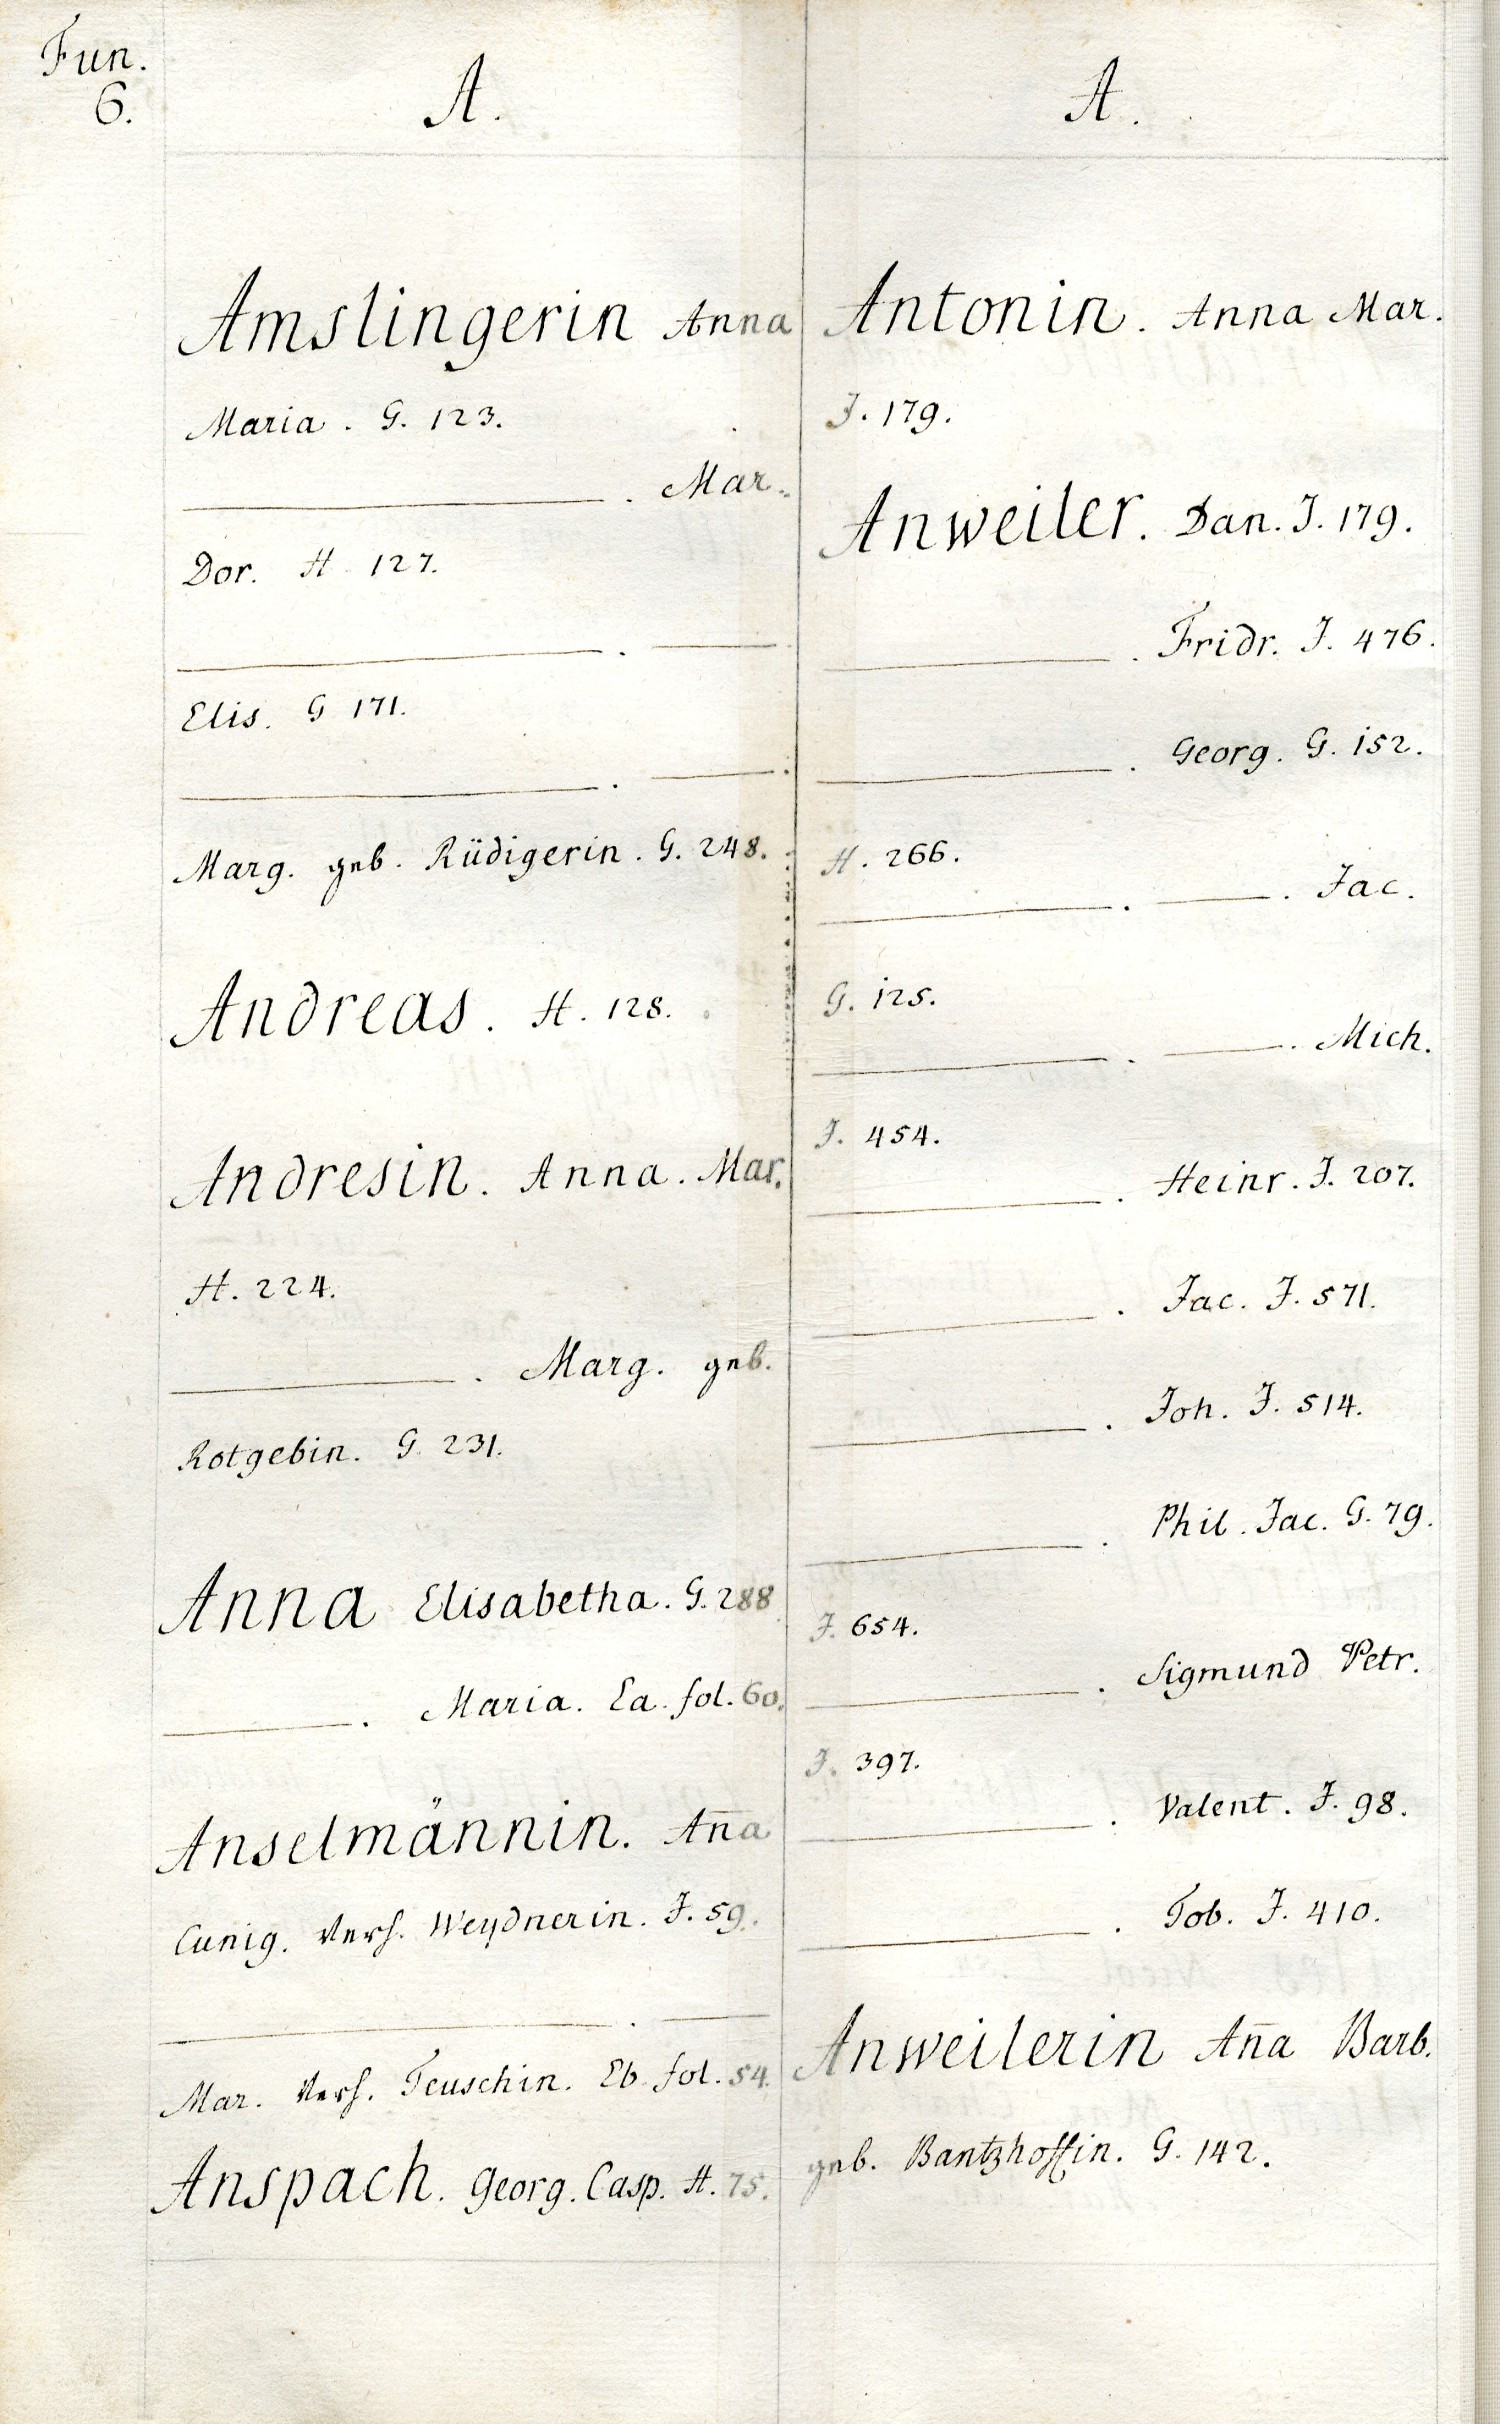 Fun.
6.
A.
Amslingerin Anna
Maria. G. 123.
———. Mar.
Dor. H 127.
———. ———
Elis. G 171.
———. ———.
Marg. geb. Rüdigerin. G. 248.
Andreas. H. 128.
Andresin. Anna. Mar.
H. 224.
———. Marg. geb.
Rotgebin. G. 231.
Anna Elisabetha. G. 288
———. Maria. Ea. fol. 60.
Anselmännin. Ana̅
Cunig. Verh. Weydnerin. J. 59.
———. ———
Mar. Verh. Teuschin. Eb. fol. 54.
Anspach. Georg. Casp. H. 75.
A.
Antonin. Anna Mar.
J. 179.
Anweiler. Dan. J. 179.
———. Fridr. J. 476.
———. Georg. G. 152.
H. 266.
———. ———. Jac.
G. 125.
———. ———. Mich.
J. 454.
———. Heinr. J. 207.
———. Jac. J. 571.
———. Joh. J. 514.
———. Phil. Jac. G. 79.
J. 654.
———. Sigmund Petr.
J. 397.
———. Valent. J. 98.
———. Tob. J. 410.
Anweilerin An̅a Barb.
geb. Bantzhoffin. G. 142.